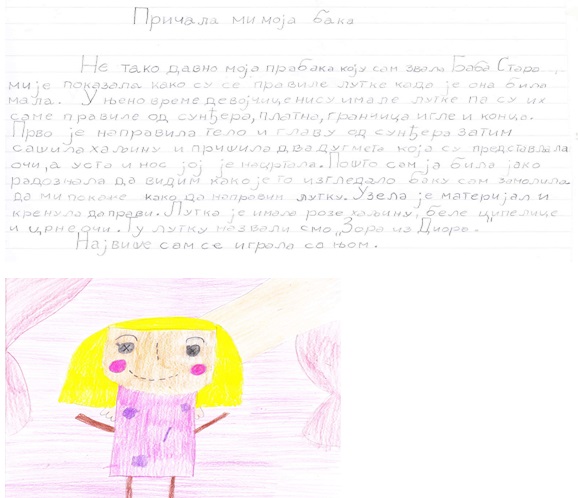 Причала ми моја бака
Не тако давно моја прабака коју сам звала Баба Стара
ми је показала како су се правиле лутке када је она била
мала. У њено време девојчице нису имале лутке па су их
саме правиле од сунђера, платна, гранчица игле и конца.
Прво је направила тело и главу од сунђера затим
сашила хаљину и пришила два дугмета која су представљала
очи, а уста и нос јој је нацртала. Пошто сам ја била јако
радознала да видим како је то изгледало баку сам замолила
да ми покаже како да направим лутку. Узела је материјал и
кренула да прави. Лутка је имала розе хаљину, беле ципелице
и црне очи. Ту лутку назвали смо „Зора из Диора.
Највише сам се играла са њом.